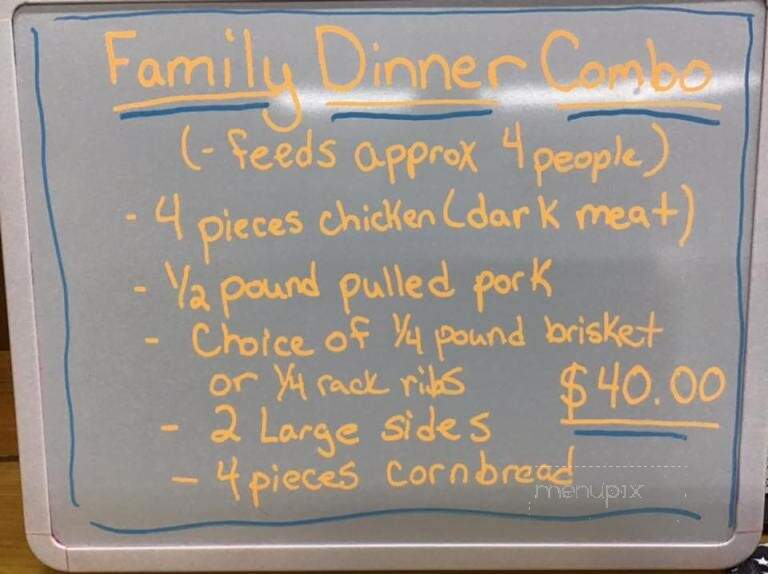 Family Dinner Combo
(- feeds approx 4 people)
- 4 pieces chicken (dark meat)
- 1/2 pound pulled pork
- Choice of 1/4 pound brisket
or 1/4 rack ribs $40.00
- 2 Large sides
- 4 pieces cornbread
menupix